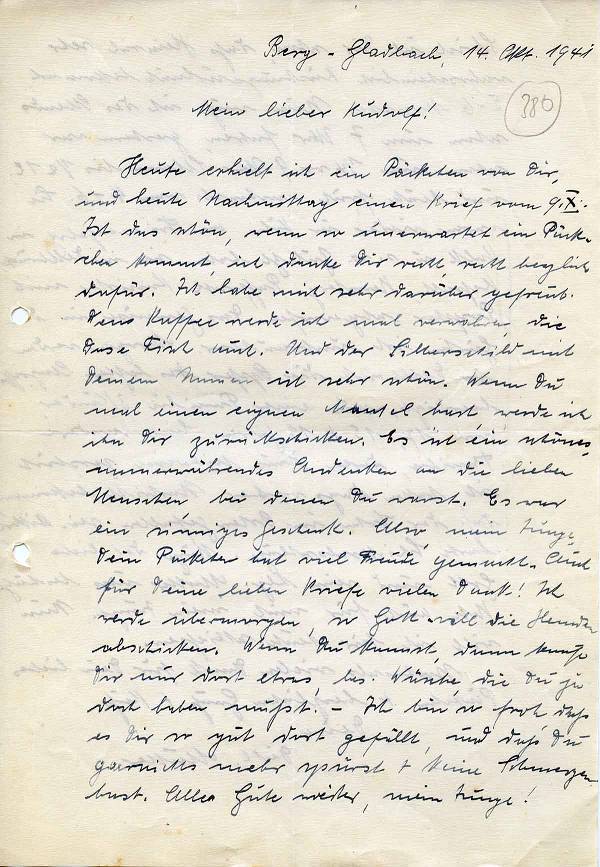 Berg-Gladbach, 14. Okt. 1941
386
Mein lieber Rudolf!
Heute erhielt ich ein Päckchen von Dir,
und heute Nachmittag einen Brief vom 9.X.
Ist das schön, wenn so unerwartet ein Päck-
chen kommt, ich danke Dir recht, recht herzlich
dafür. Ich habe mich sehr darüber gefreut.
Den Kaffee werde ich mal verwahren, die
Dose Fisch auch. Und der Silberschild mit
Deinem Namen ist sehr schön. Wenn Du
mal einen eignen hast, werde ich
ihn Dir zurückschicken. Es ist ein schönes,
immerwährendes Andenken an die lieben
Menschen, bei denen Du warst. Es war
ein sinniges Geschenk. Also, mein Junge,
Dein Päckchen hat viel Freude gemacht. Auch
für Deine lieben Briefe vielen Dank! Ich
werde übermorgen, so Gott will die Hemden
abschicken. Wenn Du kannst, dann kaufe
Dir nur dort etwas, bes. Wäsche, die Du ja
doch haben mußt. – Ich bin so froh, daß
es Dir so gut dort gefällt, und daß Du
garnichts mehr spürst + keine Schmerzen
hast. Alles Gute weiter, mein Junge!